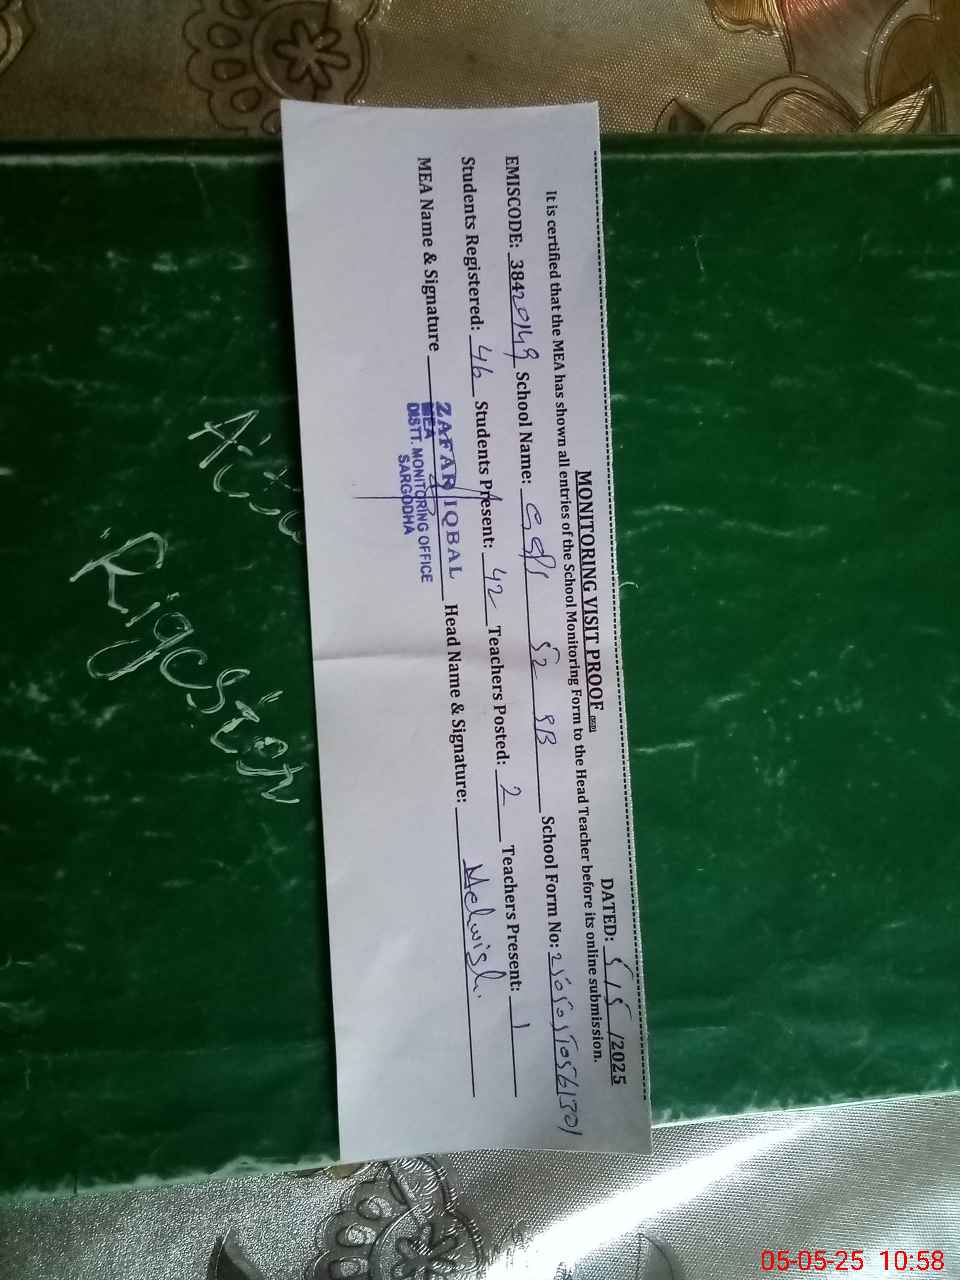 MONITORING VISIT PROOF DATED: 5/5/2025
It is certified that the MEA has shown all entries of the School Monitoring Form to the Head Teacher before its online submission.
EMISCODE: 38420149 School Name: GGPS 52 SB School Form No:
Students Registered: 46 Students Present: 42 Teachers Posted: 2 Teachers Present: 1
MEA Name & Signature Head Name & Signature: Mehwish
ZAFAR IQBAL
MEA
DISTT. MONITORING OFFICE
SARGODHA
05-05-25 10:58